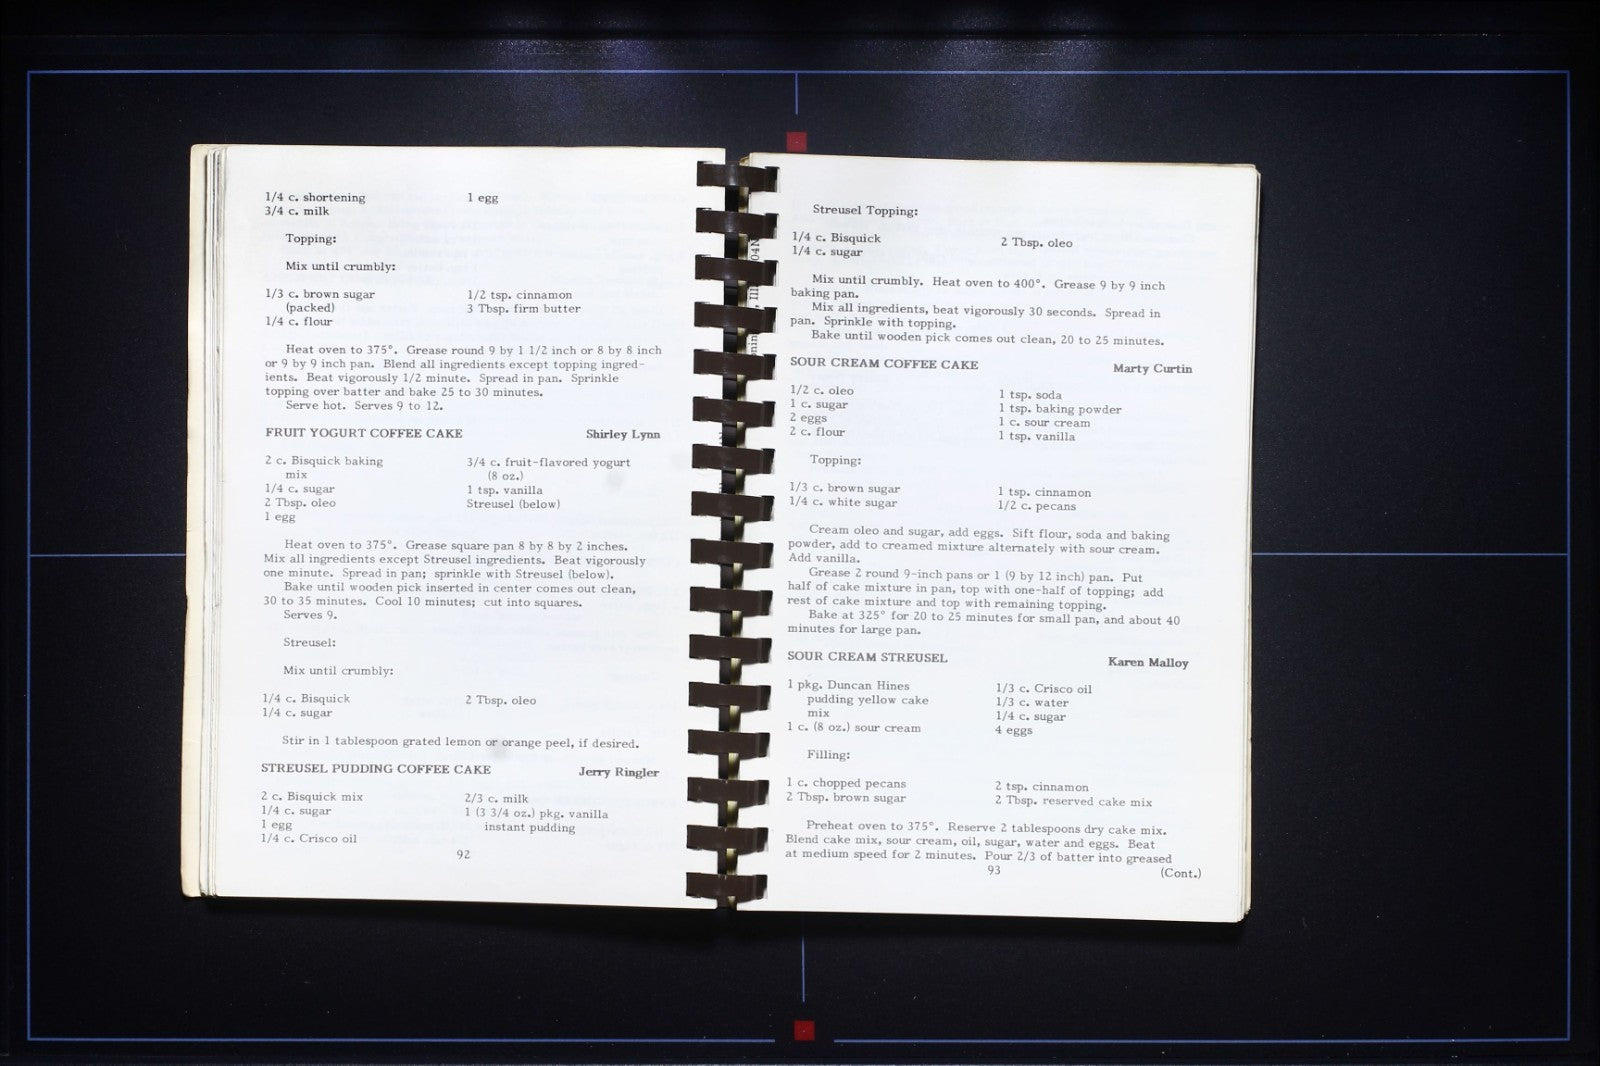 1/4 c. shortening 1 egg
3/4 c. milk
Topping:
Mix until crumbly:
1/3 c. brown sugar 1/2 tsp. cinnamon
(packed) 3 Tbsp. firm butter
1/4 c. flour
Heat oven to 375°. Grease round 9 by 1 1/2 inch or 8 by 8 inch
or 9 by 9 inch pan. Blend all ingredients except topping ingred-
ients. Beat vigorously 1/2 minute. Spread in pan. Sprinkle
topping over batter and bake 25 to 30 minutes.
Serve hot. Serves 9 to 12.
FRUIT YOGURT COFFEE CAKE Shirley Lynn
2 c. Bisquick baking 3/4 c. fruit-flavored yogurt
mix (8 oz.)
1/4 c. sugar 1 tsp. vanilla
2 Tbsp. oleo Streusel (below)
1 egg
Heat oven to 375°. Grease square pan 8 by 8 by 2 inches.
Mix all ingredients except Streusel ingredients. Beat vigorously
one minute. Spread in pan; sprinkle with Streusel (below).
Bake until wooden pick inserted in center comes out clean,
30 to 35 minutes. Cool 10 minutes; cut into squares.
Serves 9.
Streusel:
Mix until crumbly:
1/4 c. Bisquick 2 Tbsp. oleo
1/4 c. sugar
Stir in 1 tablespoon grated lemon or orange peel, if desired.
STREUSEL PUDDING COFFEE CAKE Jerry Ringler
2 c. Bisquick mix 2/3 c. milk
1/4 c. sugar 1 (3 3/4 oz.) pkg. vanilla
1 egg instant pudding
1/4 c. Crisco oil
92
Streusel Topping:
1/4 c. Bisquick 2 Tbsp. oleo
1/4 c. sugar
Mix until crumbly. Heat oven to 400°. Grease 9 by 9 inch
baking pan.
Mix all ingredients, beat vigorously 30 seconds. Spread in
pan. Sprinkle with topping.
Bake until wooden pick comes out clean, 20 to 25 minutes.
SOUR CREAM COFFEE CAKE Marty Curtin
1/2 c. oleo 1 tsp. soda
1 c. sugar 1 tsp. baking powder
2 eggs 1 c. sour cream
2 c. flour 1 tsp. vanilla
Topping:
1/3 c. brown sugar 1 tsp. cinnamon
1/4 c. white sugar 1/2 c. pecans
Cream oleo and sugar, add eggs. Sift flour, soda and baking
powder, add to creamed mixture alternately with sour cream.
Add vanilla.
Grease 2 round 9-inch pans or 1 (9 by 12 inch) pan. Put
half of cake mixture in pan, top with one-half of topping; add
rest of cake mixture and top with remaining topping.
Bake at 325° for 20 to 25 minutes for small pan, and about 40
minutes for large pan.
SOUR CREAM STREUSEL Karen Malloy
1 pkg. Duncan Hines 1/3 c. Crisco oil
pudding yellow cake 1/3 c. water
mix 1/4 c. sugar
1 c. (8 oz.) sour cream 4 eggs
Filling:
1 c. chopped pecans 2 tsp. cinnamon
2 Tbsp. brown sugar 2 Tbsp. reserved cake mix
Preheat oven to 375°. Reserve 2 tablespoons dry cake mix.
Blend cake mix, sour cream, oil, sugar, water and eggs. Beat
at medium speed for 2 minutes. Pour 2/3 of batter into greased
93 (Cont.)